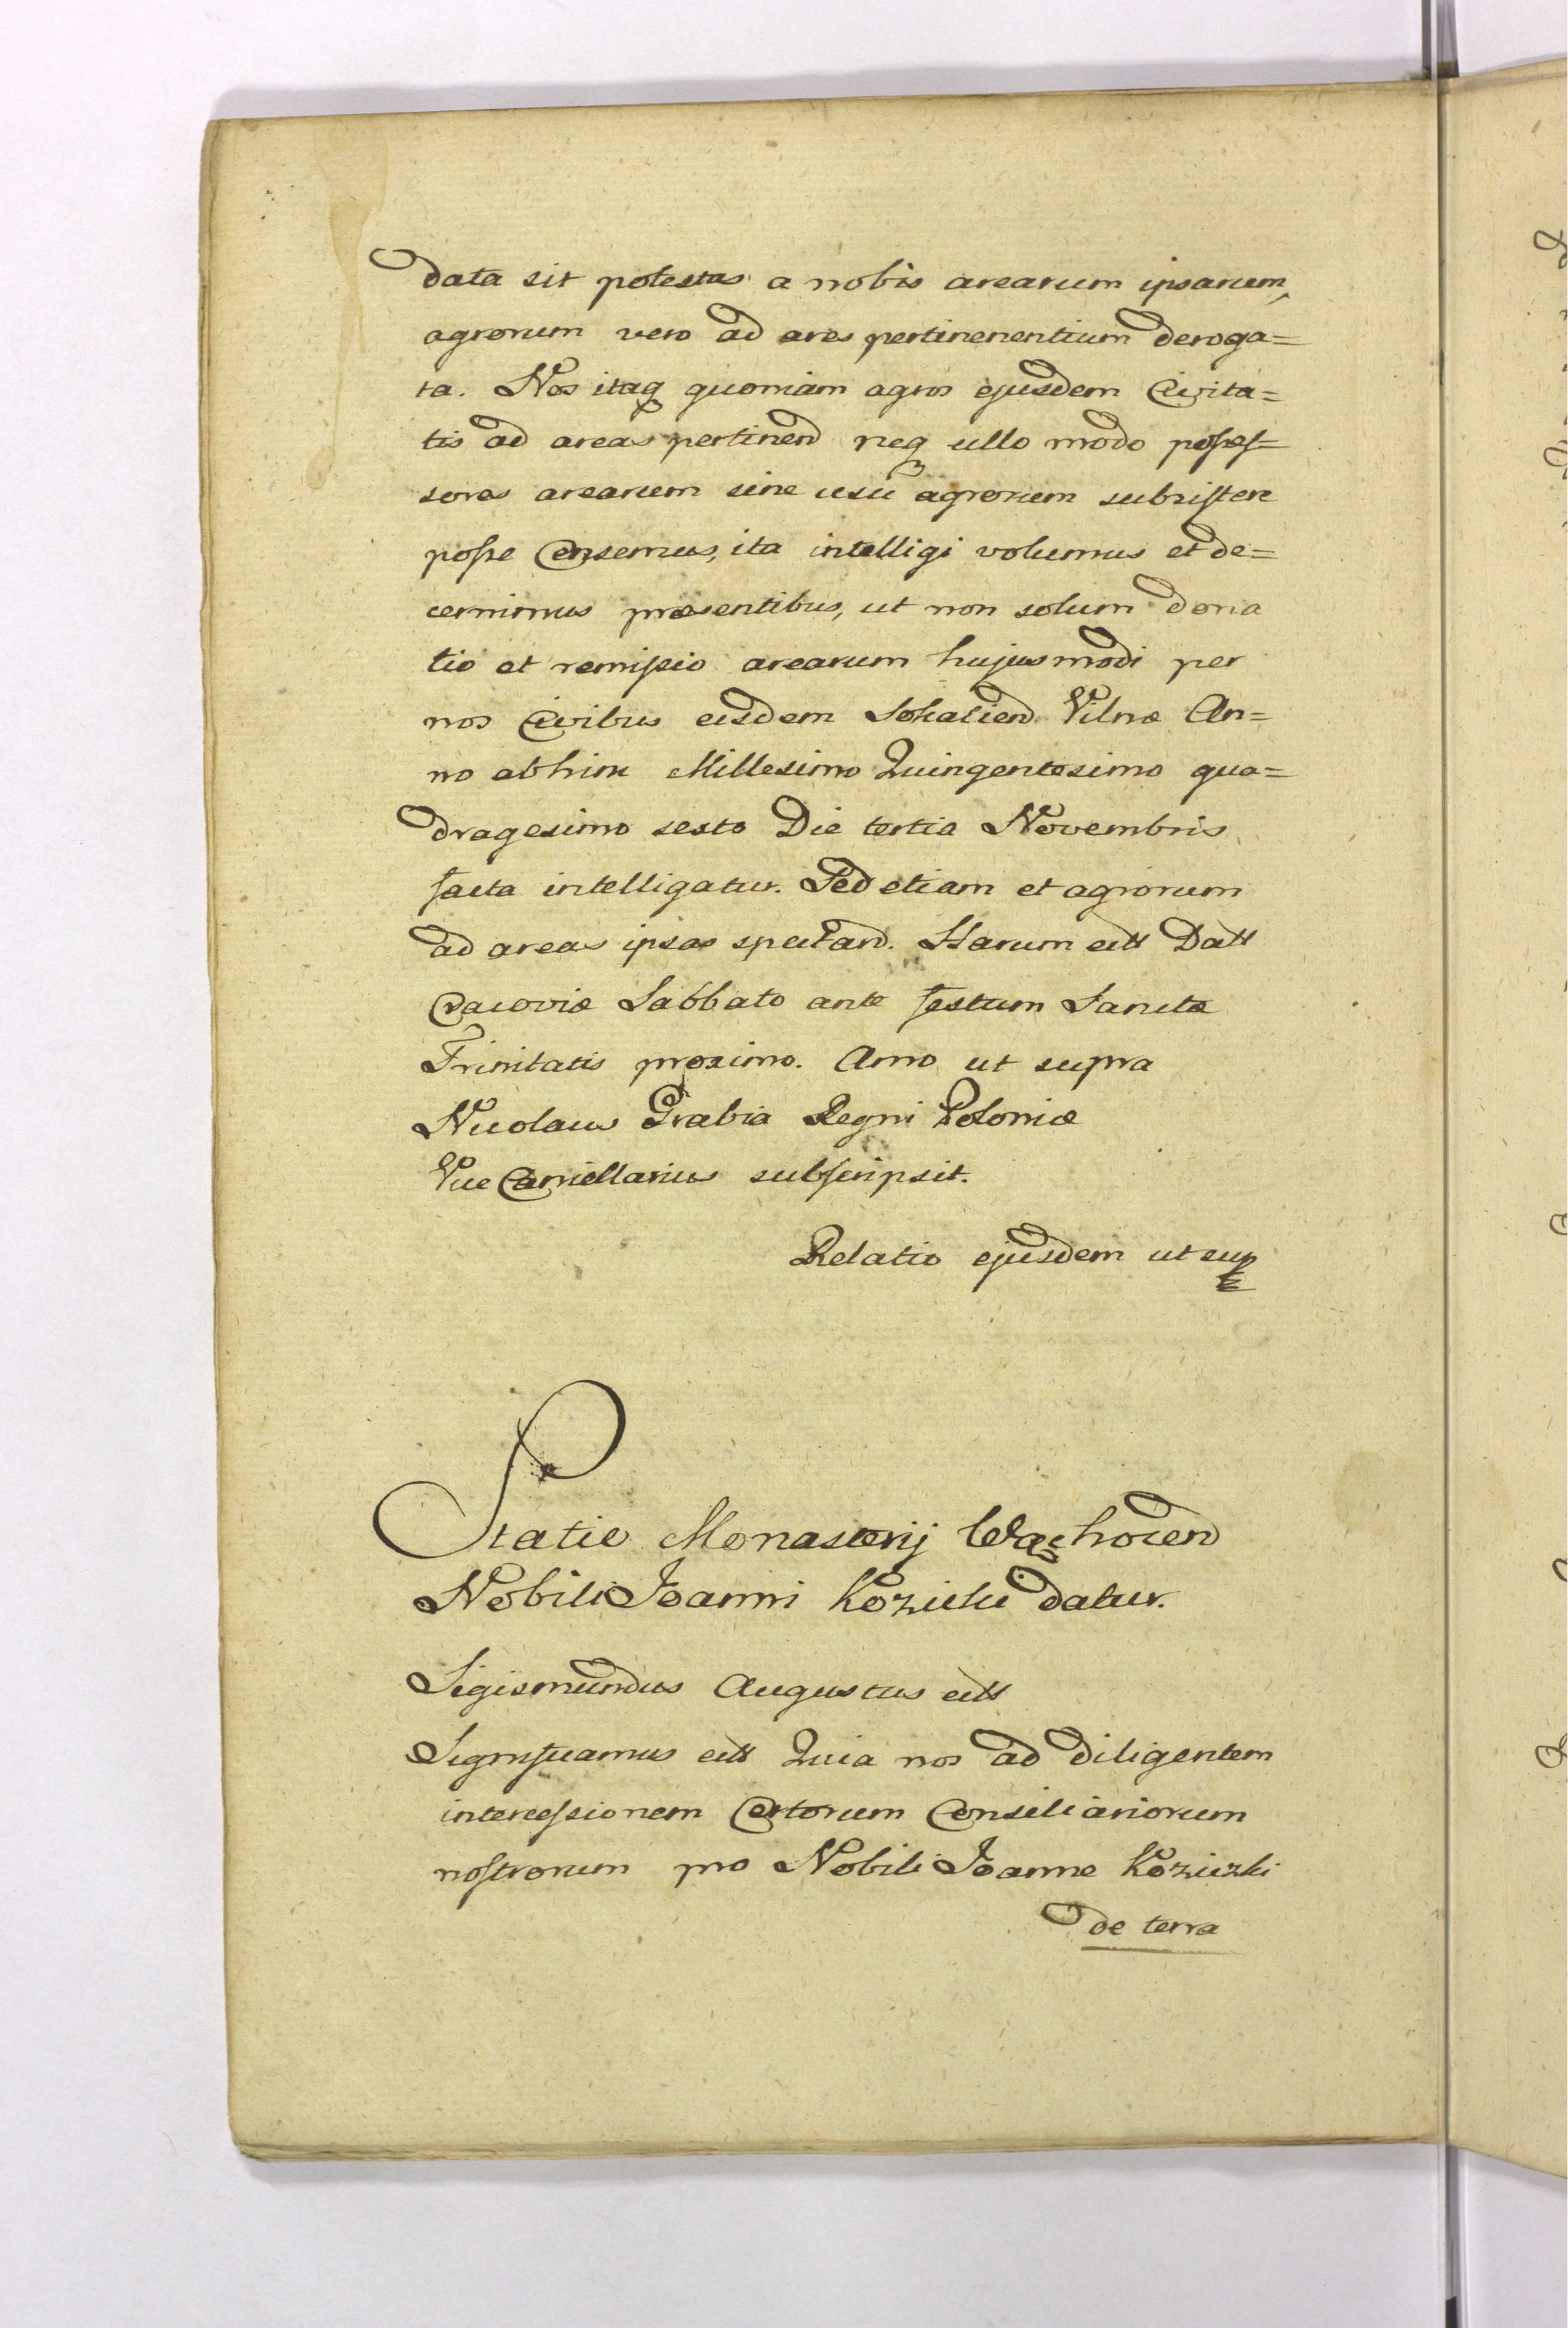 data sit potestas a nobis arearum ipsarum,
agrorum vero ad ares pertinenentium deroga=
ta. Nos itaq quoniam agros ejusdem Civita=
tis ad areas pertinend neq ullo modo posses=
sores arearum sine usu agrorum subsistere
posse Censemus, ita intelligi volumus et de=
cernimus præsentibus, ut non solum dona
tio et remissio arearum hujusmodi per
nos Civibus eisdem Sokaliend Vilnæ An=
no abhinc Millesimo Quingentesimo qua=
dragesimo sexto Die tertia Novembris
facta intelligatur. Sed etiam et agrorum
ad areas ipsas spectand. Harum ett Datt
Cracoviæ Sabbato ante festum Sanctæ
Trinitatis proximo. Anno ut supra
Nicolaus Grabia Regni Poloniæ
Vice Cancellarius subscripsit.
Relatio ejusdem ut sup
Statio Monasterij Wachocend
Nobili Joanni Kozicki datur.
Sigismundus Augustus ett
Significamus ett Quia nos ad diligentem
intercessionem Certorum Consiliariorum
nostrorum pro Nobili Joanne Koziczki
de terra